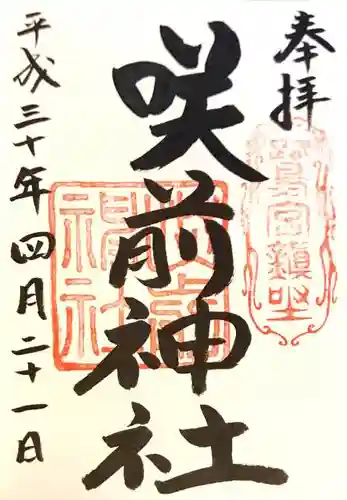 奉拝
咲前神社
平成三十年四月二十一日